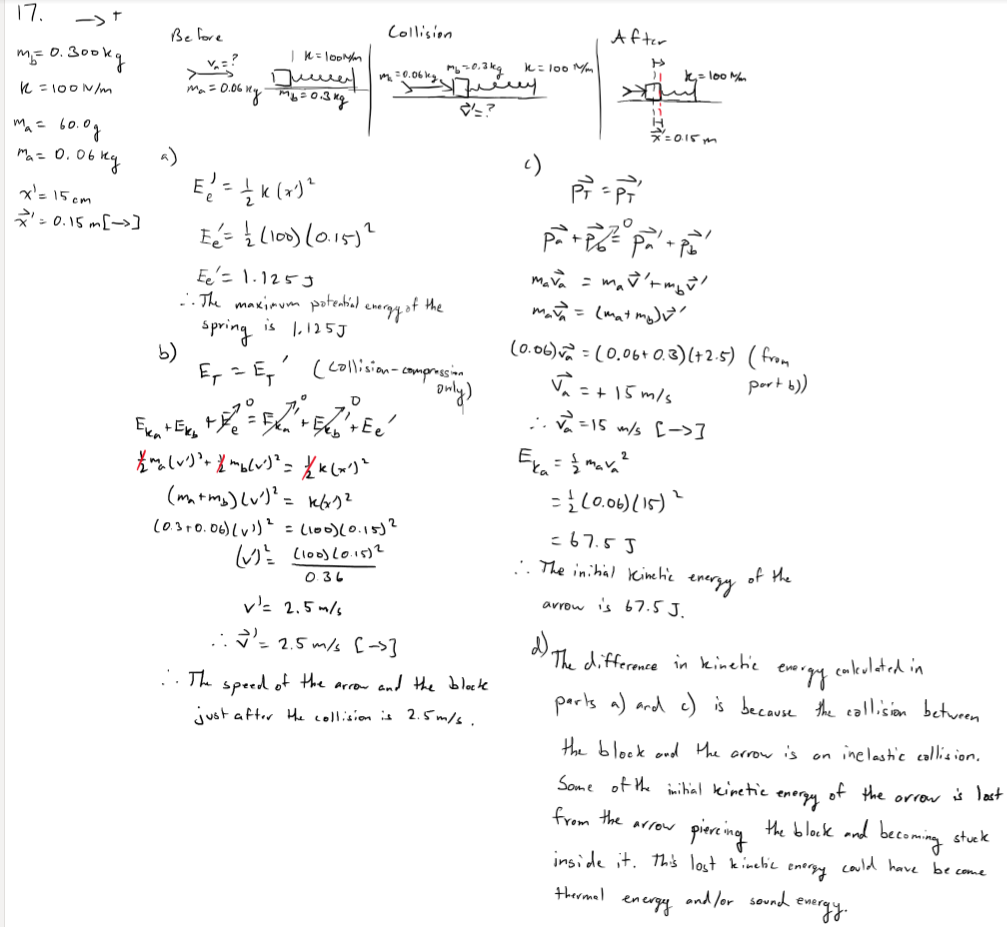 17. → +
m_b = 0.300kg
k = 100 N/m
m_a = 60.0g
m_a = 0.06 kg
x' = 15 cm
x⃗' = 0.15 m [→]
Before
v⃗_a = ?
m_a = 0.06 kg
k = 100 N/m
m_b = 0.3 kg
Collision
m_a = 0.06 kg
m_b = 0.3 kg
k = 100 N/m
v⃗' = ?
After
k = 100 N/m
x⃗' = 0.15 m
a)
E_e' = 1/2 k (x')²
E_e' = 1/2 (100)(0.15)²
E_e' = 1.125 J
∴ The maximum potential energy of the
spring is 1.125J
b)
E_T = E_T' (collision-compression
only)
E_ka + E_kb + E_e⁰ = E_ka'⁰ + E_kb'⁰ + E_e'
1/2 m_a(v')² + 1/2 m_b(v')² = 1/2 k(x')²
(m_a + m_b)(v')² = k(x')²
(0.3 + 0.06)(v')² = (100)(0.15)²
(v')² = (100)(0.15)² / 0.36
v' = 2.5 m/s
∴ v⃗' = 2.5 m/s [→]
∴ The speed of the arrow and the block
just after the collision is 2.5 m/s.
c)
p⃗_T = p⃗_T'
p⃗_a + p⃗_b⁰ = p⃗_a' + p⃗_b'
m_a v⃗_a = m_a v⃗' + m_b v⃗'
m_a v⃗_a = (m_a + m_b) v⃗'
(0.06) v⃗_a = (0.06 + 0.3)(+2.5) (from
part b))
v⃗_a = + 15 m/s
∴ v⃗_a = 15 m/s [→]
E_ka = 1/2 m_a v_a²
= 1/2 (0.06)(15)²
= 67.5 J
∴ The initial kinetic energy of the
arrow is 67.5 J.
d) The difference in kinetic energy calculated in
parts a) and c) is because the collision between
the block and the arrow is an inelastic collision.
Some of the initial kinetic energy of the arrow is lost
from the arrow piercing the block and becoming stuck
inside it. This lost kinetic energy could have become
thermal energy and/or sound energy.